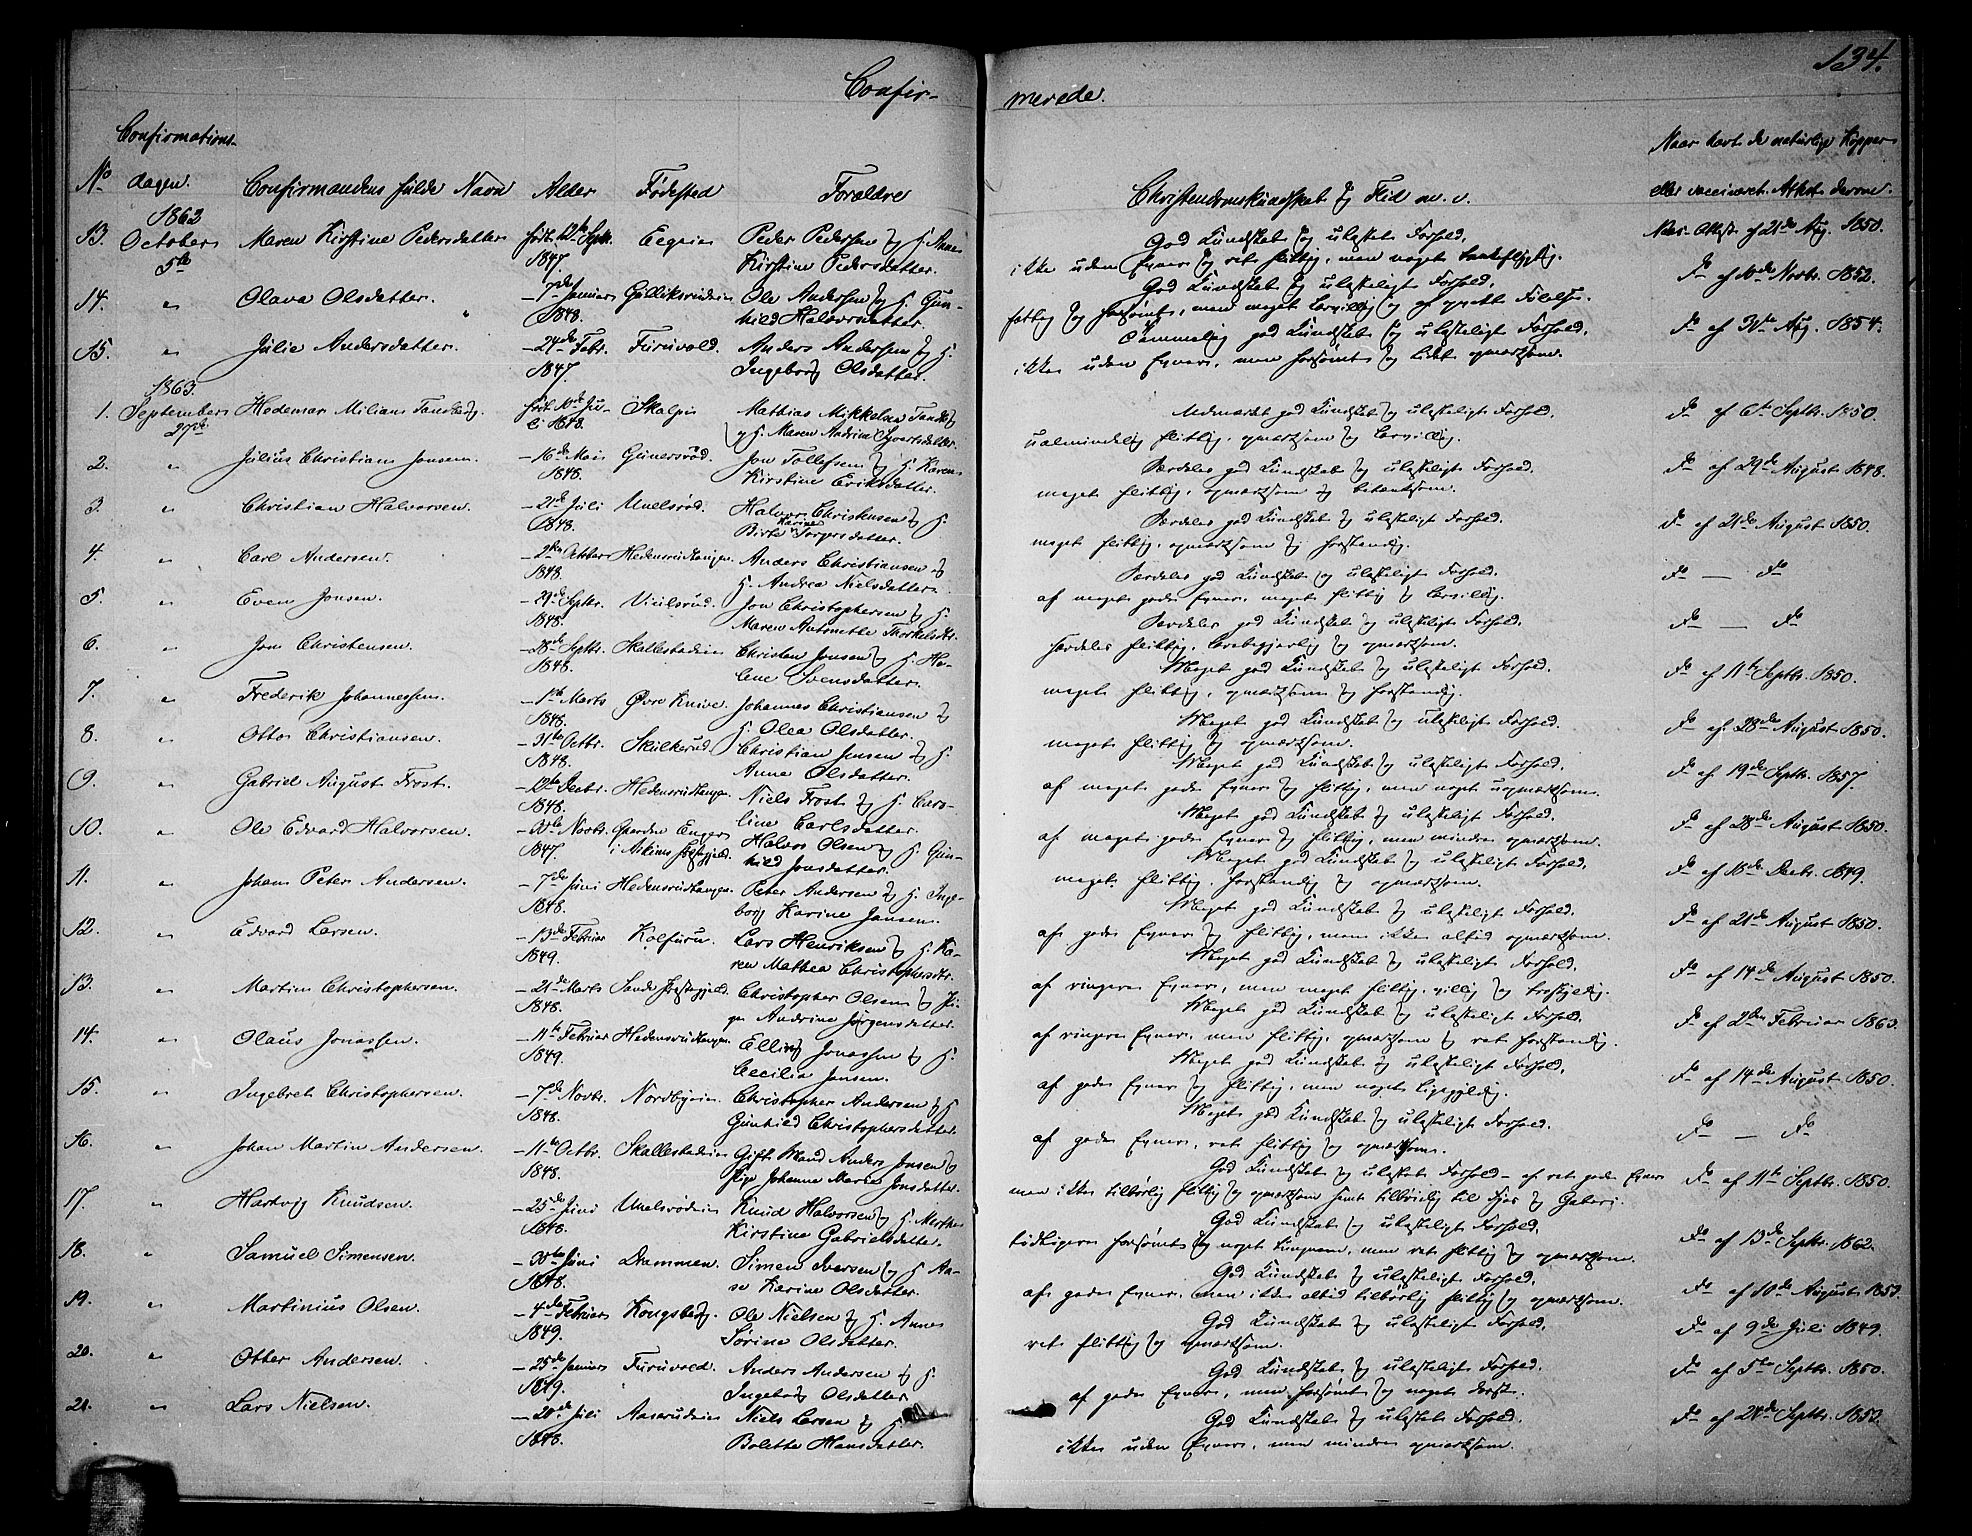 134.
Confir-
merede.
Confirmations-
No dagen. Confirmandens fulde Navn Alder Fødested Forældre
Christendomskundskab og Flid m. v.
Naar havt de naturlige Kopper
eller vaccineret. Attest derom.
1862
13. October Maren Kirstine Pedersdatter født 12te Septr. Eegeie Peder Pedersen og H. Anne
5te 1847. Kirstine Pedersdatter.
God Kundskab og ulastet Forhold.
ikke uden Evner og ret flittig, men noget tankeflygtig.
Vac. Attest af 21de Aug. 1850.
14. " Olava Olsdatter. – 7de Januar Gulliksrudeie Ole Andersen og H. Gun-
1848. hild Halvorsdatter.
God Kundskab og ulasteligt Forhold.
Do af 10de Novbr. 1852.
15. " Julie Andersdatter. – 24de Febr. Furuvold. Anders Andersen og H.
1847. Ingeborg Olsdatter.
Temmelig god Kundskab og ulasteligt Forhold.
ikke uden Evner, men forsømt og lidet opmærksom.
Do af 31te Aug. 1854.
1863.
1. September Hedemar Milian Tandberg. født 10de Ju- Skalpin Mathias Mikkelsen Tandberg
27de li 1848. og H. Maren Andrine Syvertsdatter.
Udmærket god Kundskab og ulasteligt Forhold.
ualmindelig flittig, opmærksom og lærvillig.
Do af 6te Septbr. 1850.
2. " Julius Christian Jonsen. – 16de Mai Gunersrød. Jon Tollefsen og H. Karen
1848. Kirstine Eriksdatter.
Særdeles god Kundskab og ulasteligt Forhold.
meget flittig, opmærksom og betænksom.
Do af 29de August 1848.
3. " Christian Halvorsen. – 21de Juli Unelsrød. Halvor Christensen og H.
1848. Birte Karine Torgersdatter.
Særdeles god Kundskab og ulasteligt Forhold.
meget flittig, opmærksom og forstandig.
Do af 21de August 1850.
4. " Carl Andersen. – 2den October Hedensrudtangen. Anders Christiansen og
1848. H. Andrea Nielsdatter.
Særdeles god Kundskab og ulasteligt Forhold.
af meget gode Evner, meget flittig og lærvillig.
Do — Do
5. " Even Jonsen. – 29de Septbr. Jon Christophersen og H.
1848. Maren Antonette Thorkelsdtr.
Særdeles god Kundskab og ulasteligt Forhold.
særdeles flittig, lærebegjærlig og opmærksom.
Do — Do
6. " Jon Christensen. – 28de Septbr. Skallestadeie Christen Jonsen og H. He-
1848. lene Svensdatter.
Meget god Kundskab og ulasteligt Forhold.
meget flittig, opmærksom og forstandig.
Do af 11te Septbr. 1850.
7. " Frederik Johannessen. – 1ste Marts Øvre Knive. Johannes Christiansen og
1848. H. Olea Olsdatter.
Meget god Kundskab og ulasteligt Forhold.
meget flittig og opmærksom.
Do af 28de August 1850.
8. " Otto Christiansen. – 31te Octbr. Skilkerud. Christian Jensen og H.
1848. Anne Olsdatter.
Meget god Kundskab og ulasteligt Forhold.
af meget gode Evner og flittig, men noget uopmærksom.
Do af 19de Septbr. 1857.
9. " Gabriel August Frost. – 12te Decbr. Hedensrudtangen. Niels Frost og H. Caro-
1848. line Carlsdatter.
Meget god Kundskab og ulasteligt Forhold.
af meget gode Evner og flittig, men mindre opmærksom.
Do af 28de August 1850.
10. " Ole Edvard Halvorsen. – 30te Novbr. Gaarden Enger Halvor Olsen og H. Gun-
1847. i Askims Præstegjeld. hild Jonsdatter.
Meget god Kundskab og ulasteligt Forhold.
meget flittig, forstandig og opmærksom.
Do af 16de Decbr. 1849.
11. " Johan Peter Andersen. – 7de Juni Hedensrudtangen. Peter Andersen og H. Inge-
1848. borg Karine Jansen.
Meget god Kundskab og ulasteligt Forhold.
af gode Evner og flittig, men ikke altid opmærksom.
Do af 21de August 1850.
12. " Edvard Larsen. – 13de Februar Kolfuru. Lars Henriksen og H. Ka-
1849. ren Mathea Christophersdtr.
Meget god Kundskab og ulasteligt Forhold.
af ringere Evner, men meget flittig, villig og troskyldig.
Do af 14de August 1850.
13. " Martin Christophersen. – 21de Marts Sande Præstegjeld. Christopher Olsen og Pi-
1848. ge Andrine Jørgensdatter.
Meget god Kundskab og ulasteligt Forhold.
af ringere Evner, men flittig, opmærksom og ret forstandig.
Do af 2den Februar 1863.
14. " Olaus Jonassen. – 11te Februar Hedensrudtangen Elling Jonassen og H.
1849. Cecilia Jansen.
Meget god Kundskab og ulasteligt Forhold.
af gode Evner og flittig, men noget ligegyldig.
Do af 14de August 1850.
15. " Ingebret Christophersen. – 7de Novbr. Nordbyeie. Christopher Andersen og H.
1848. Gunhild Christophersdatter.
Meget god Kundskab og ulasteligt Forhold.
af gode Evner, ret flittig og opmærksom.
Do — Do
16. " Johan Martin Andersen. – 11te Octbr. Skallestadeie Gift Mand Anders Jonsen og
1848. Pige Johanne Marie Jonsdatter.
God Kundskab og ulastet Forhold – af ret gode Evner
men ikke tilbørlig flittig og opmærksom samt tilbøielig til
Do af 11te Septbr. 1850.
17. " Hartvig Knudsen. – 25de Juni Unelsrødeie Knud Halvorsen og H. Marthe
1848. Kirstine Gabrielsdatter.
God Kundskab og ulasteligt Forhold.
tidligere forsømt og noget langsom, men ret flittig og opmærksom.
Do af 13de Septbr. 1862.
18. " Samuel Simensen. – 30te Juni Drammen. Simen Iversen og H. An-
1848. ne Karine Olsdatter.
God Kundskab og ulasteligt Forhold.
af gode Evner, men ikke altid tilbørlig flittig og opmærksom.
Do af 10de August 1853.
19. " Martinius Olsen. – 4de Februar Kongsberg. Ole Nielsen og H. Anne
1849. Sørine Olsdatter.
God Kundskab og ulasteligt Forhold.
ret flittig og opmærksom.
Do af 9de Juli 1849.
20. " Otter Andersen. – 25de Januar Furuvold. Anders Andersen og H.
1849. Ingeborg Olsdatter.
God Kundskab og ulasteligt Forhold.
af gode Evner, men forsømt og noget
Do af 5te Septbr. 1850.
21. " Lars Nielsen. – 20de Juli Aaserudeie Niels Larsen og H.
1848. Bolette Hansdatter.
God Kundskab og ulastet Forhold.
ikke uden Evner, men mindre opmærksom.
Do af 24de Septbr. 1852.